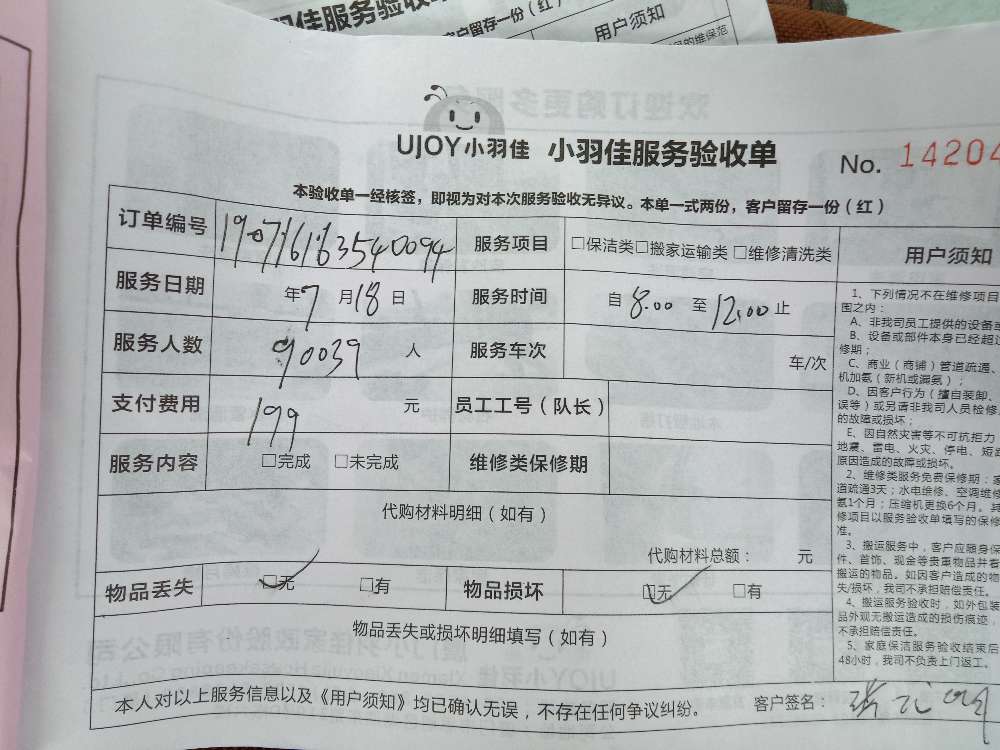 羽佳服务验收
客户留存一份（红）
用户知识
UJOY小羽佳 小羽佳服务验收单 No. 14204
本验收单一经核签，即视为对本次服务验收无异议。本单一式两份，客户留存一份（红）
订单编号 190716163540094 服务项目 □保洁类□搬家运输类 □维修清洗类 用户须知
服务日期 年7月18日 服务时间 自 8:00 至 12:00 止
服务人数 90039 人 服务车次 车/次
支付费用 199 元 员工工号（队长）
服务内容 □完成 □未完成 维修类保修期
代购材料明细（如有）
代购材料总额： 元
物品丢失 □无 □有 物品损坏 □无 □有
物品丢失或损坏明细填写（如有）
本人对以上服务信息以及《用户须知》均已确认无误，不存在任何争议纠纷。 客户签名：
1、下列情况不在维修项目
围之内：
A、非我司员工提供的设备或
B、设备或部件本身已经超过
修期；
C、商业（商铺）管道疏通、
机加氨（新机或漏氨）；
D、因客户行为（擅自装卸、
误等）或另请非我司人员检修
的故障或损坏；
E、因自然灾害等不可抗拒力
地震、雷电、火灾、停电、短路
原因造成的故障或损坏。
2、维修类服务免费保修期：家
道疏通3天；水电维修、空调维修
氨1个月；压缩机更换6个月。其
修项目以服务验收单填写的保修
准。
3、搬运服务中，客户应随身保
件、首饰、现金等贵重物品并看
搬运的物品。如因客户造成的物
失/损坏，我司不承担赔偿责任。
4、搬运服务验收时，如外包装
品外观无搬运造成的损伤痕迹，
不承担赔偿责任。
5、家庭保洁服务验收结束后
48小时，我司不负责上门返工。